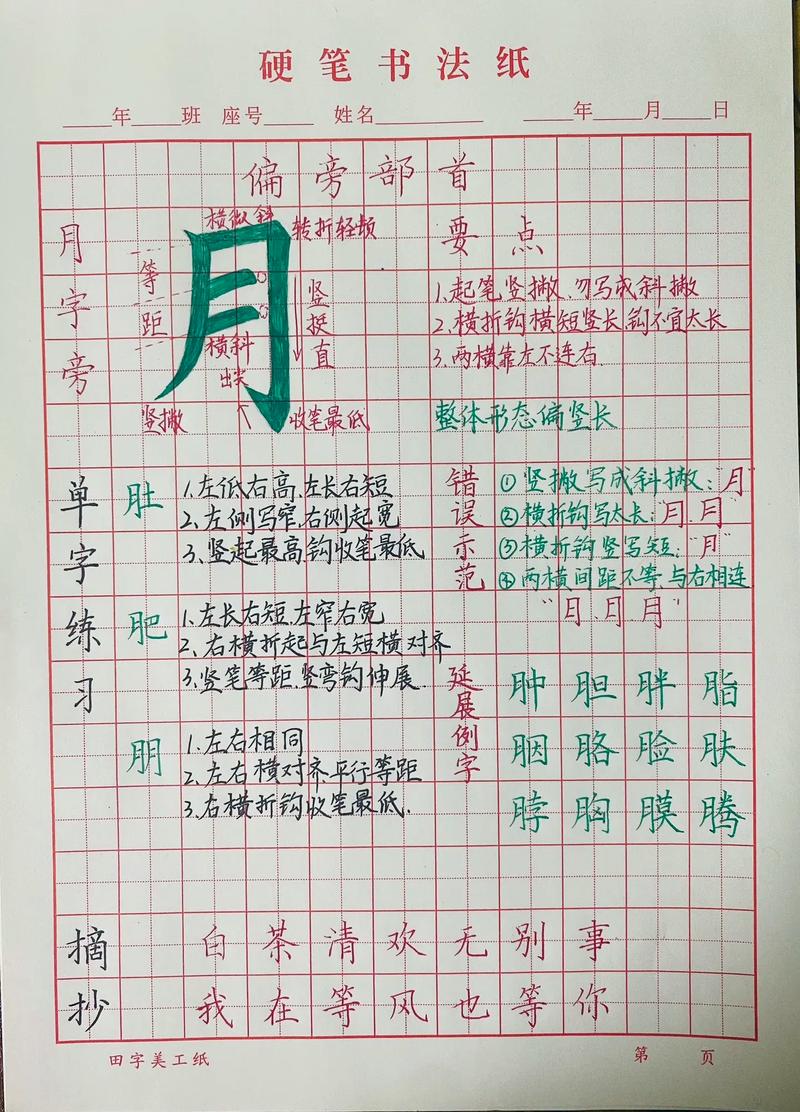 硬笔书法纸
____年____班 座号____ 姓名________ ____年____月____日
偏旁部首
月字旁
横微斜
转折轻顿
等距
竖挺直
横斜
出尖
竖撇
收笔最低
月
要点
1.起笔竖撇.勿写成斜撇
2.横折钩横短竖长,钩不宜太长
3.两横靠左不连右.
整体形态偏竖长
单字练习
肚
1.左低右高.左长右短
2.左侧写窄.右侧起宽
3.竖起最高,钩收笔最低
肥
1.左长右短.左窄右宽
2.右横折起与左短横对齐
3.竖笔等距.竖弯钩伸展.
朋
1.左右相同
2.左右横对齐平行等距
3.右横折钩收笔最低.
错误示范
①竖撇写成斜撇:"月"
②横折钩写太长:"月.月"
③横折钩竖写短:"月"
④两横间距不等.与右相连
"月.月.月"
延展例字
肿胆胖脂
胭胳脸肤
脖胸膜腾
摘抄
白茶清欢无别事
我在等风也等你
田字美工纸
第 页